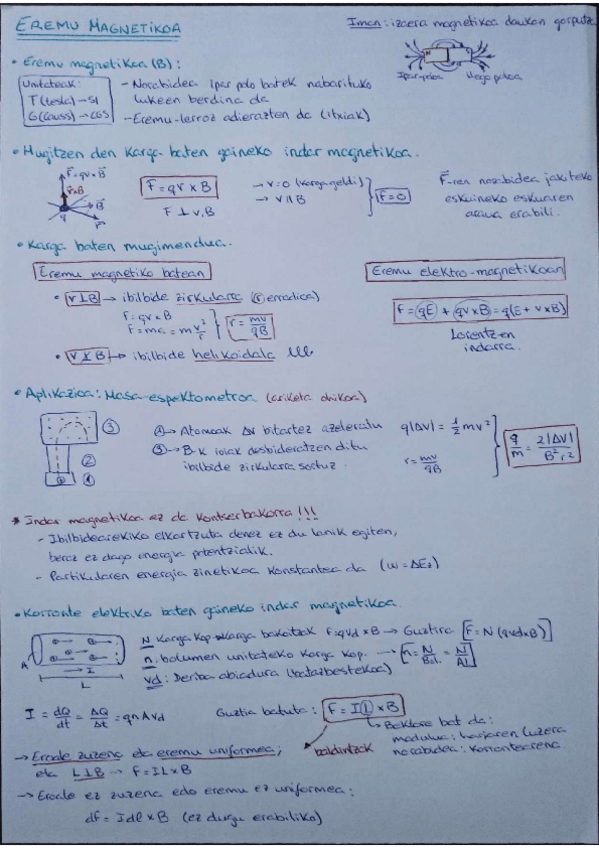 EREMU MAGNETIKOA
Iman: izaera magnetikoa daukan gorputz
Ipar poloa Hego poloa
• Eremu magnetikoa (B):
Unitateak:
T (tesla) → SI
G (Gauss) → CGS
- Norabidea ipar polo batek nabarituko
lukeen berdina da
- Eremu-lerroz adierazten da (itxiak)
• Hugitzen den karga baten gaineko indar magnetikoa.
F = qv x B
F = qv x B
F ⊥ v, B
→ v=0 (karga geldi)
→ v ∥ B
F=0
F-ren norabidea jakiteko
eskuineko eskuaren
araua erabili.
• Karga baten mugimendua.
Eremu magnetiko batean
Eremu elektro-magnetikoan
• v⊥B → ibilbide zirkularra (r erradioa)
F = qv x B
F = ma = m v²/r
r = mv/qB
F = qE + qv x B = q(E + v x B)
Lorentz-en
indarra.
• v⊥̸B → ibilbide helikoidala
• Aplikazioa: Masa-espektometroa (ariketa ohikoa)
③
②
①
① → Atomoak ΔV bitartez azeleratu
q|ΔV| = ½mv²
③ → B-k ioiak desbideratzen ditu
ibilbide zirkularra sortuz.
r = mv/qB
q/m = 2|ΔV|/B²r²
* Indar magnetikoa ez da kontserbakorra!!!
- Ibilbidearekiko elkartzuta denez ez du lanik egiten,
beraz ez dago energia potentzialik.
- Partikularen energia zinetikoa konstantea da (W = ΔEz)
• Korronte elektriko baten gaineko indar magnetikoa
A I L
N karga kop. → karga bakoitzak F=qvd x B → Guztira [F = N (qvd x B)]
n: bolumen unitateko karga kop. → [n = N/Bol. = N/AL]
vd: Deriba abiadura (batazbestekoa)
I = dQ/dt = ΔQ/Δt = qnAvd
Guztia batuta: F = IL x B
→ Bektore bat da:
modulua: hariaren luzera
norabidea: korrontearena
→ Eroale zuzena eta eremu uniformea; baldintzak
eta L⊥B → F = IL x B
→ Eroale ez zuzena edo eremu ez uniformea:
dF = Idl x B (ez dugu erabiliko)